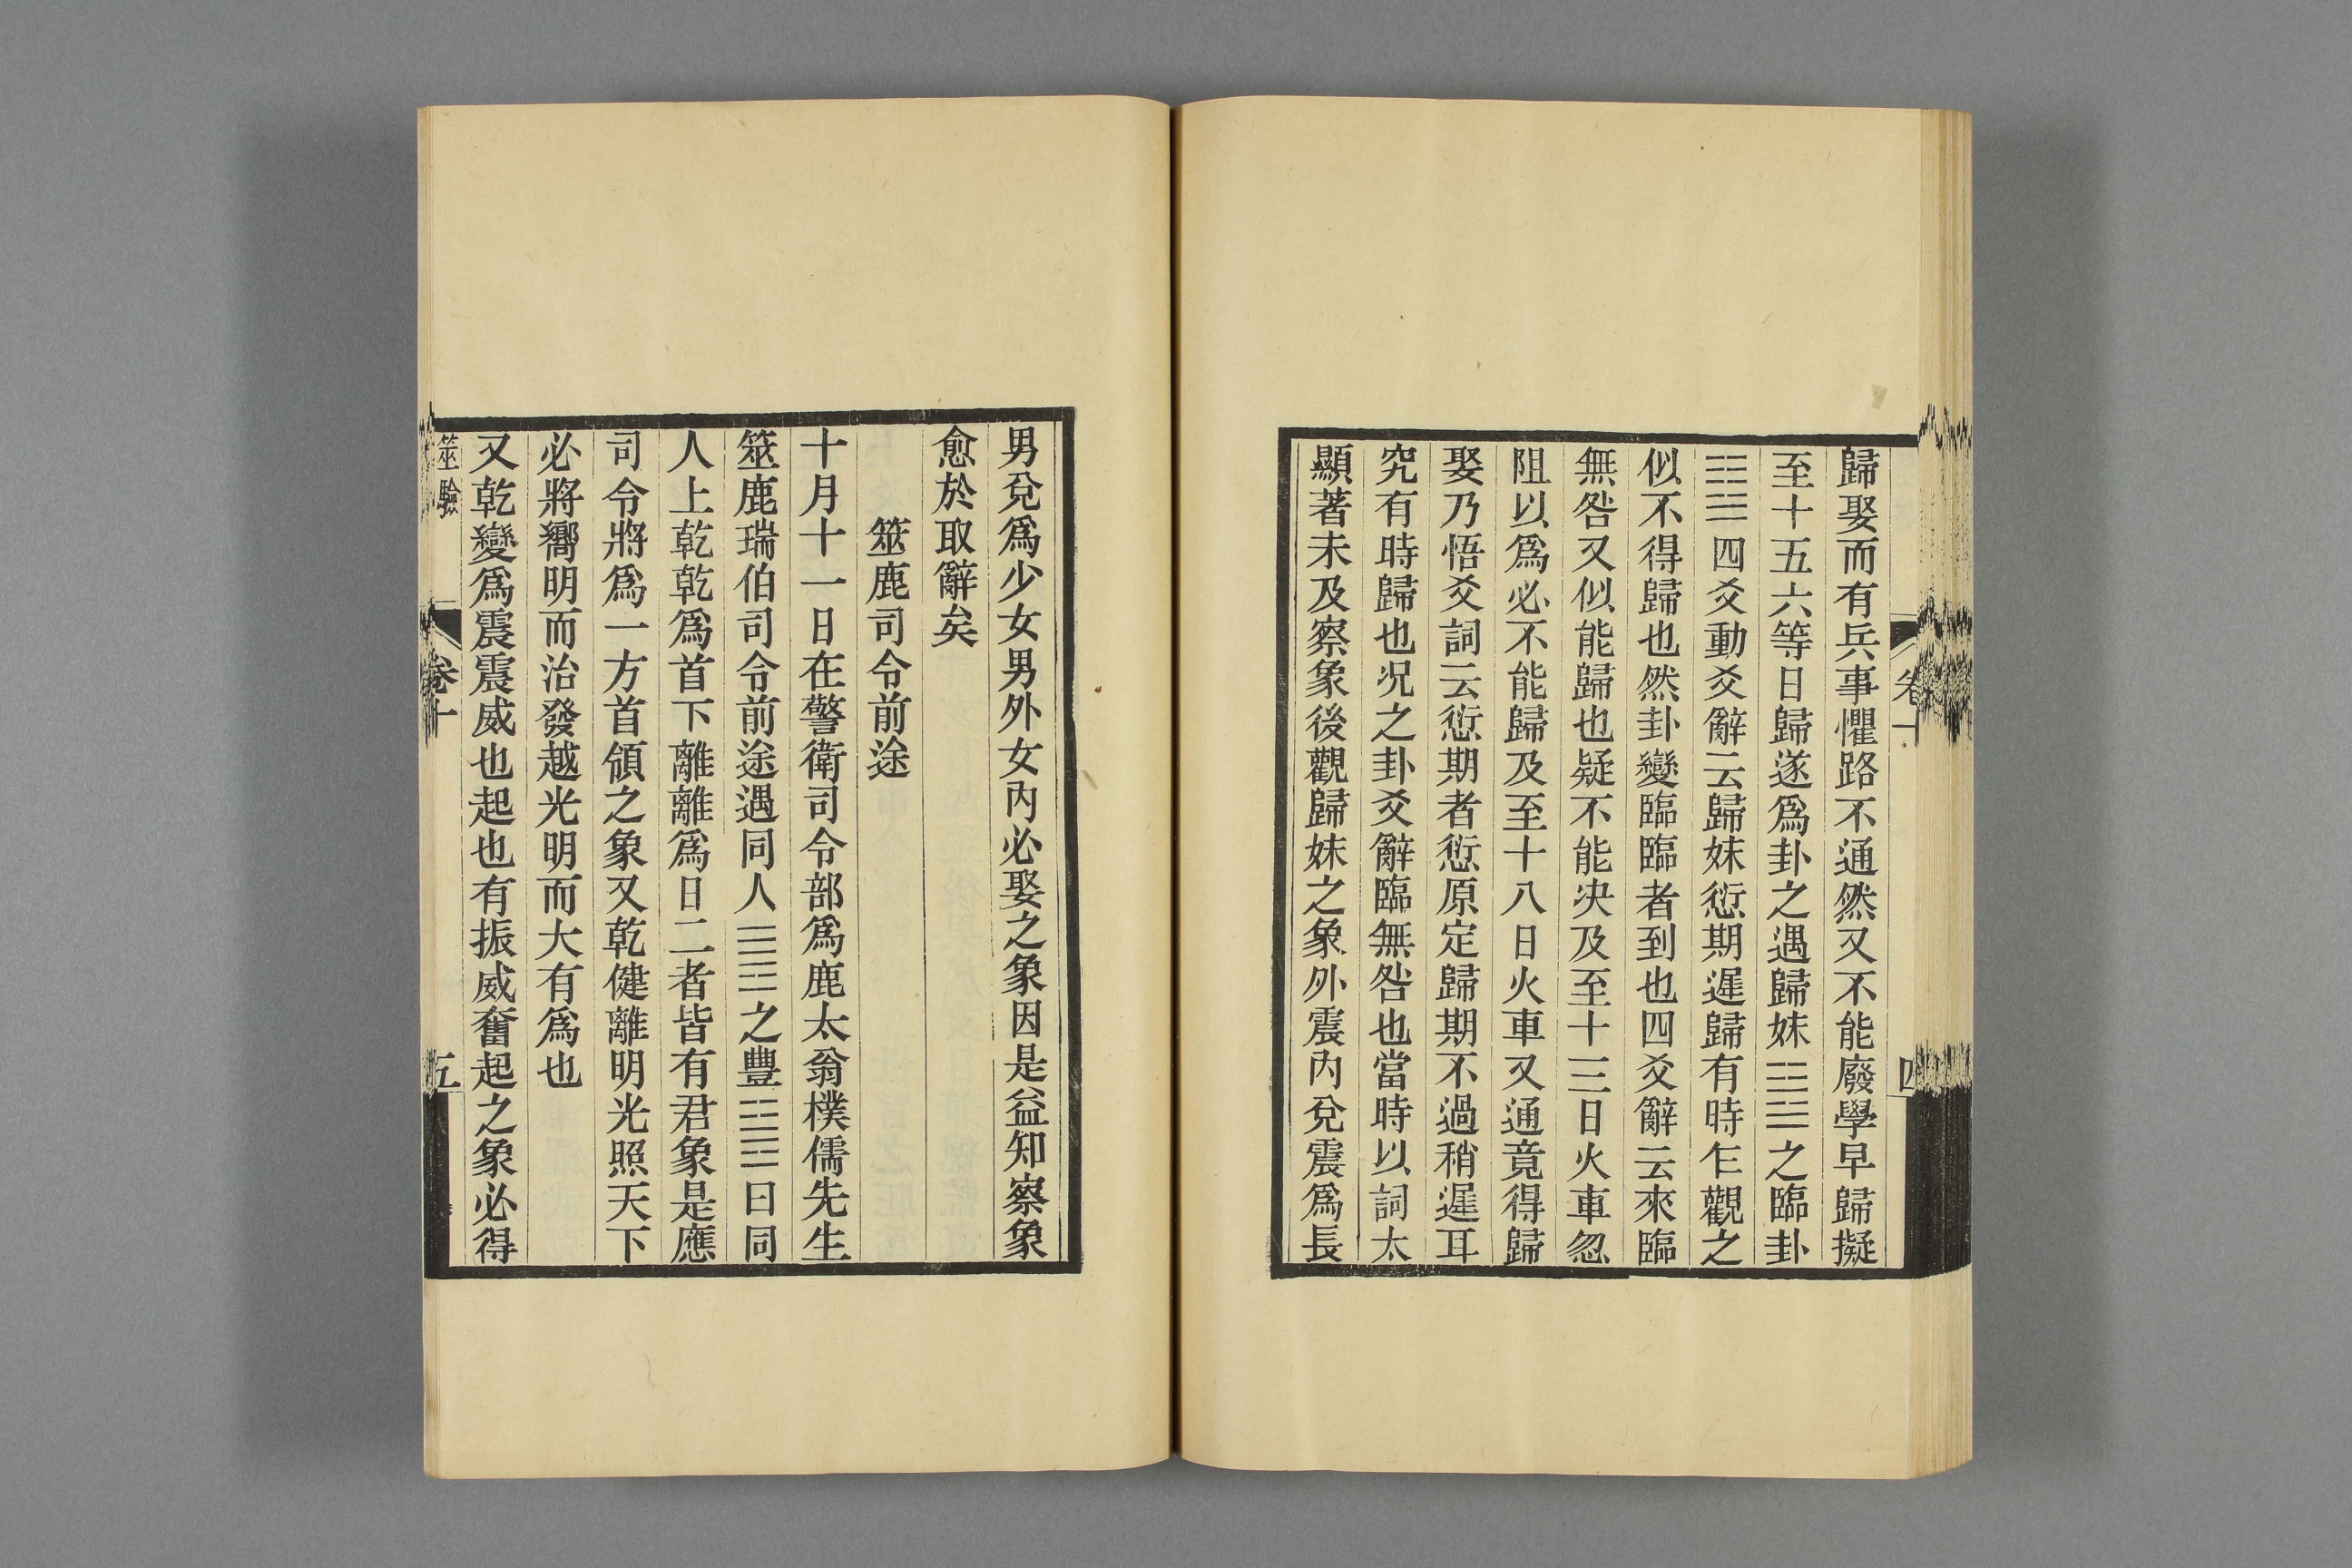 歸娶而有兵事懼路不通然又不能廢學早歸擬
至十五六等日歸遂爲卦之遇歸妹☳☱之臨卦
☷☱四爻動爻辭云歸妹愆期遲歸有時乍觀之
似不得歸也然卦變臨臨者到也四爻辭云來臨
無咎又似能歸也疑不能决及至十三日火車忽
阻以爲必不能歸及至十八日火車又通竟得歸
娶乃悟爻詞云愆期者愆原定歸期不過稍遲耳
究有時歸也况之卦爻辭臨無咎也當時以詞太
顯著未及察象後觀歸妹之象外震內兌震爲長
卷十
四
男兌爲少女男外女內必娶之象因是益知察象
愈於取辭矣
筮鹿司令前途
十月十一日在警衛司令部爲鹿太翁樸儒先生
筮鹿瑞伯司令前途遇同人☰☲之豐☳☲曰同
人上乾乾爲首下離離爲日二者皆有君象是應
司令將爲一方首領之象又乾健離明光照天下
必將嚮明而治發越光明而大有爲也
又乾變爲震震威也起也有振威奮起之象必得
筮驗
卷十
五